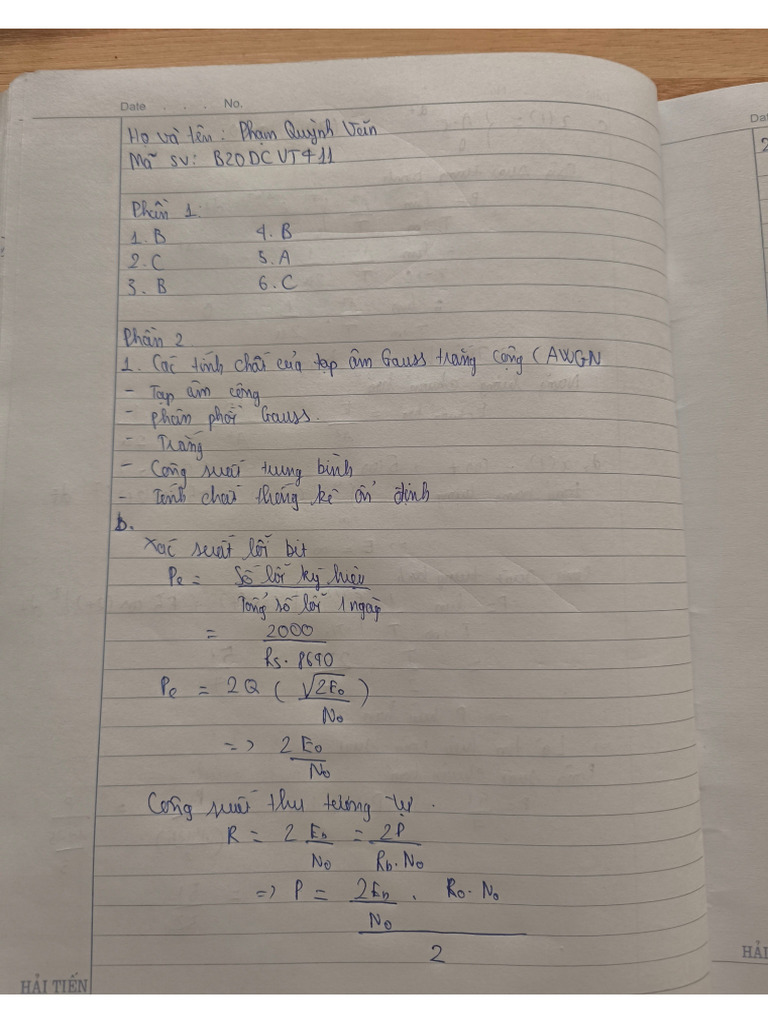 Date . . . No.
Họ và tên : Phạm Quỳnh
Mã SV: B20DCVT411
Phần 1:
1. B 4. B
2. C 5. A
3. B 6. C
Phần 2
1. Các tính chất của tạp âm Gauss trắng cộng (AWGN
- Tạp âm cộng
- phân phối Gauss.
- Trắng
- Công suất trung bình
- Tính chất thống kê ổn định
b.
Xác suất lỗi bit
Pe = Số lỗi ký hiệu / Tổng số lỗi 1 ngày
= 2000 / Rs. 8640
Pe = 2Q ( √2E₀ / N₀ )
=> 2E₀ / N₀
Công suất thu tương tự.
R = 2 Eb / N₀ = 2P / Rb. N₀
=> P = 2Eb / N₀ . R₀. N₀ / 2
HẢI TIẾN
Dat
2
HẢI